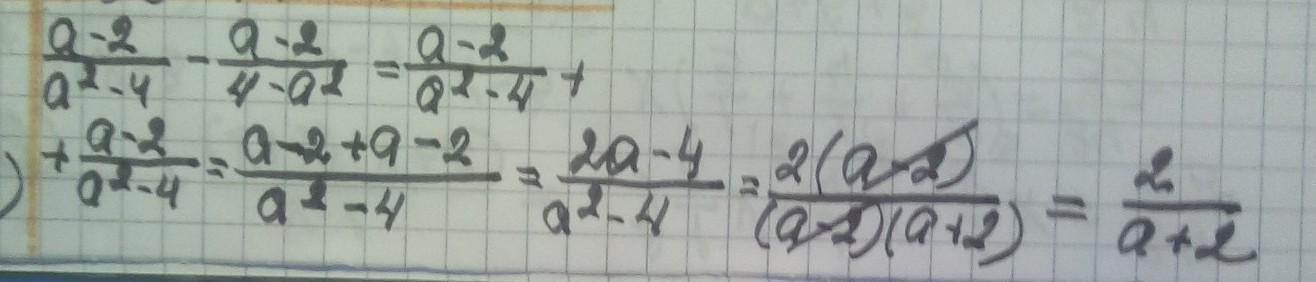 (a-2)/(a²-4) - (a-2)/(4-a²) = (a-2)/(a²-4) +
) + (a-2)/(a²-4) = (a-2+a-2)/(a²-4) = (2a-4)/(a²-4) = 2(a-2)/((a-2)(a+2)) = 2/(a+2)